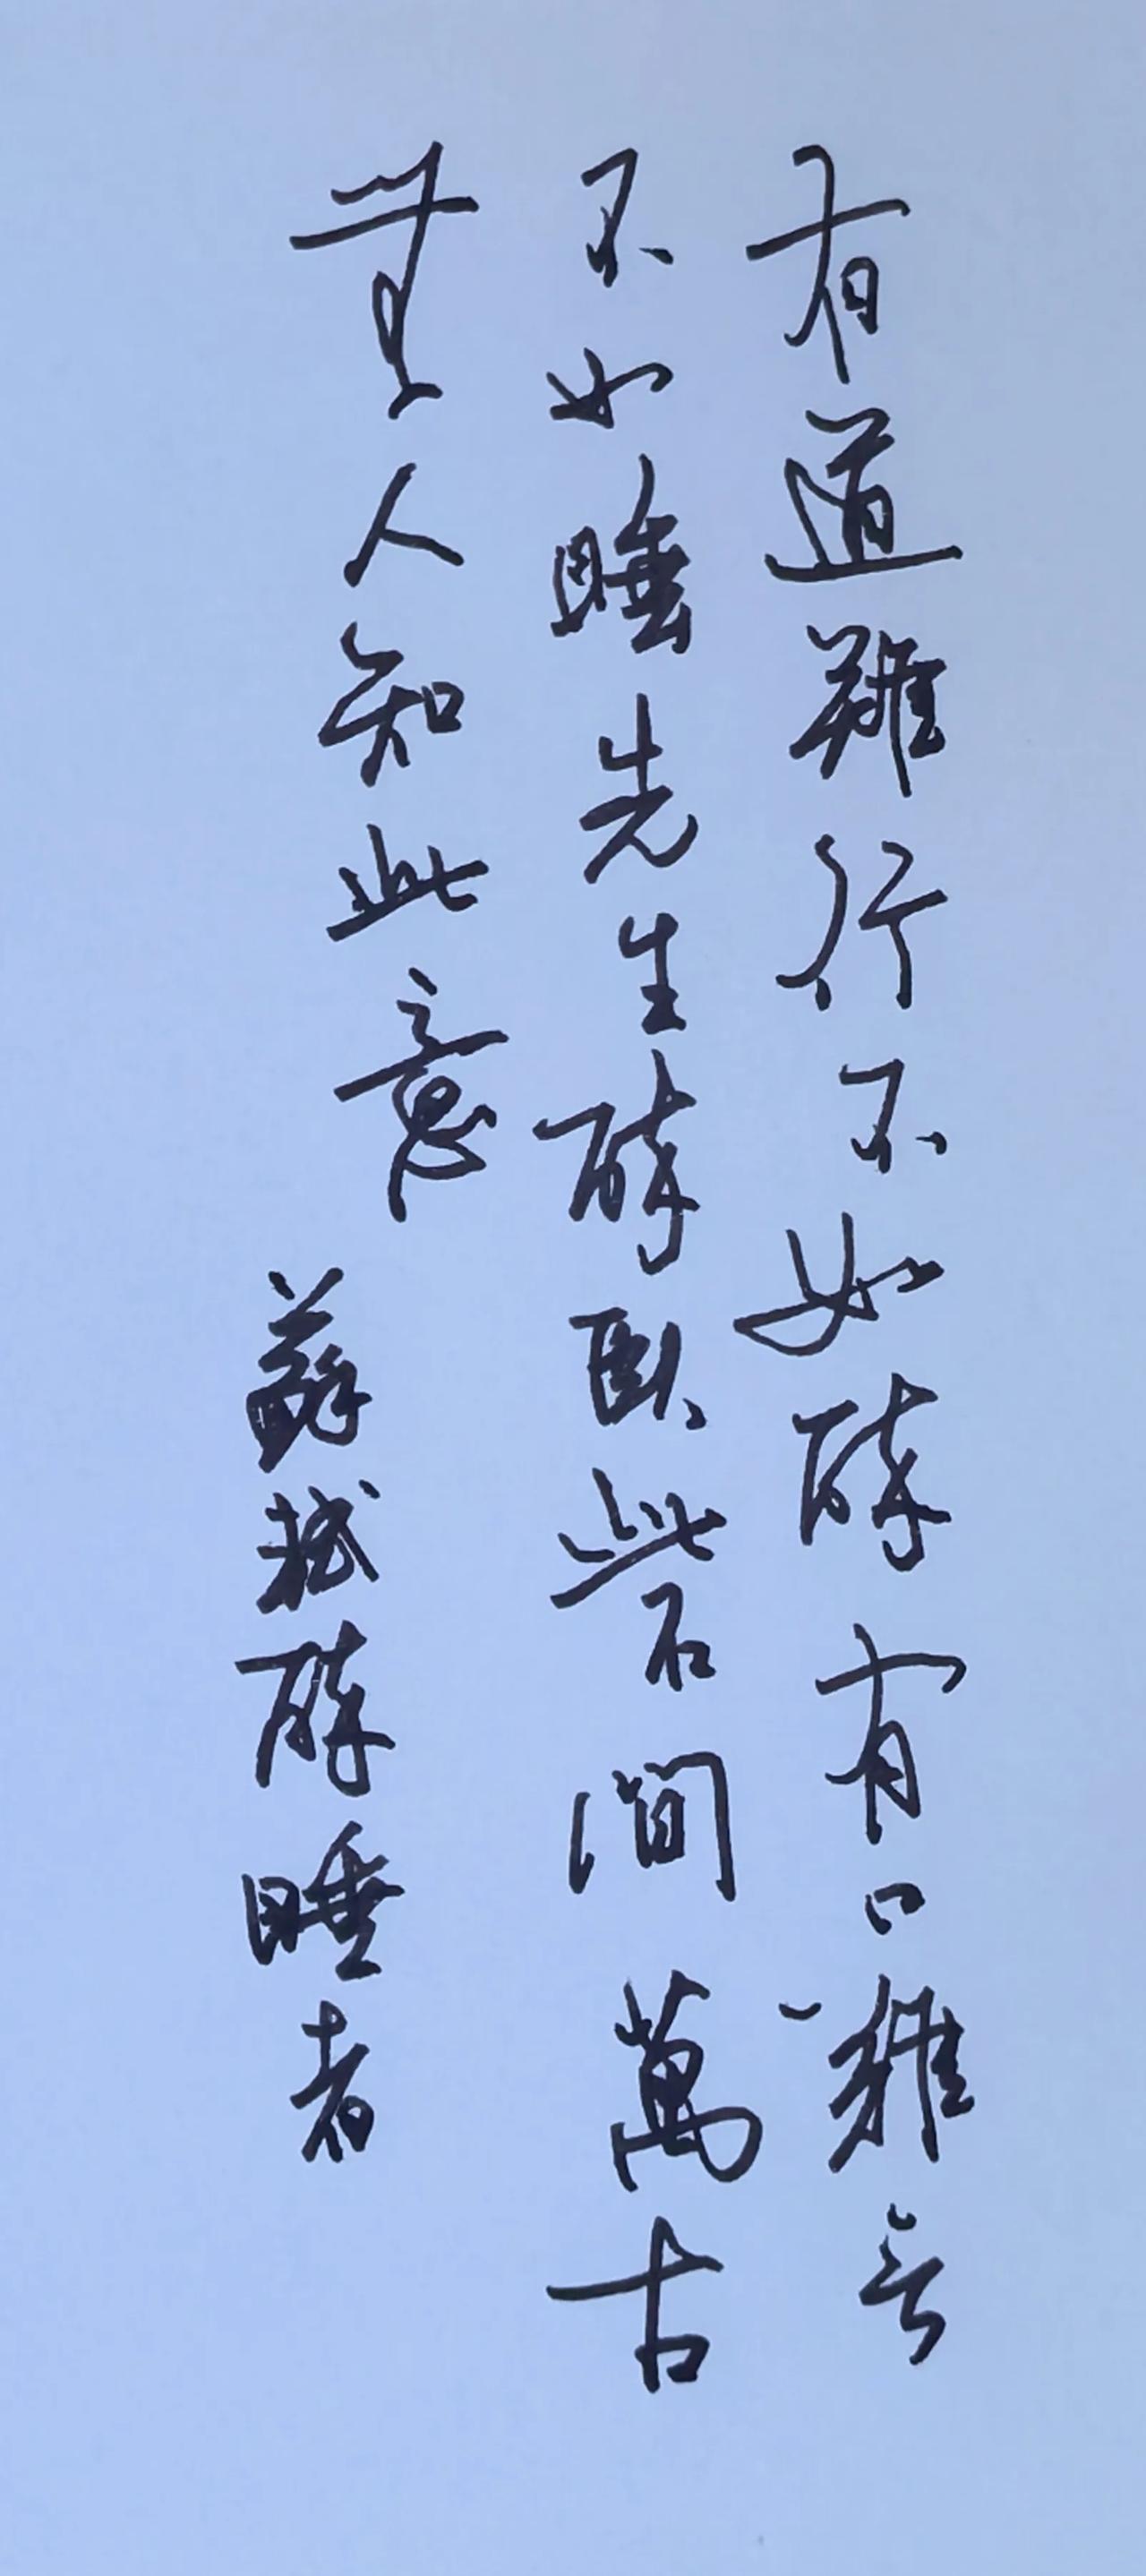 有道難行不如醉有口難言
不如睡先生醉臥此石間萬古
無人知此意
蘇軾醉睡者